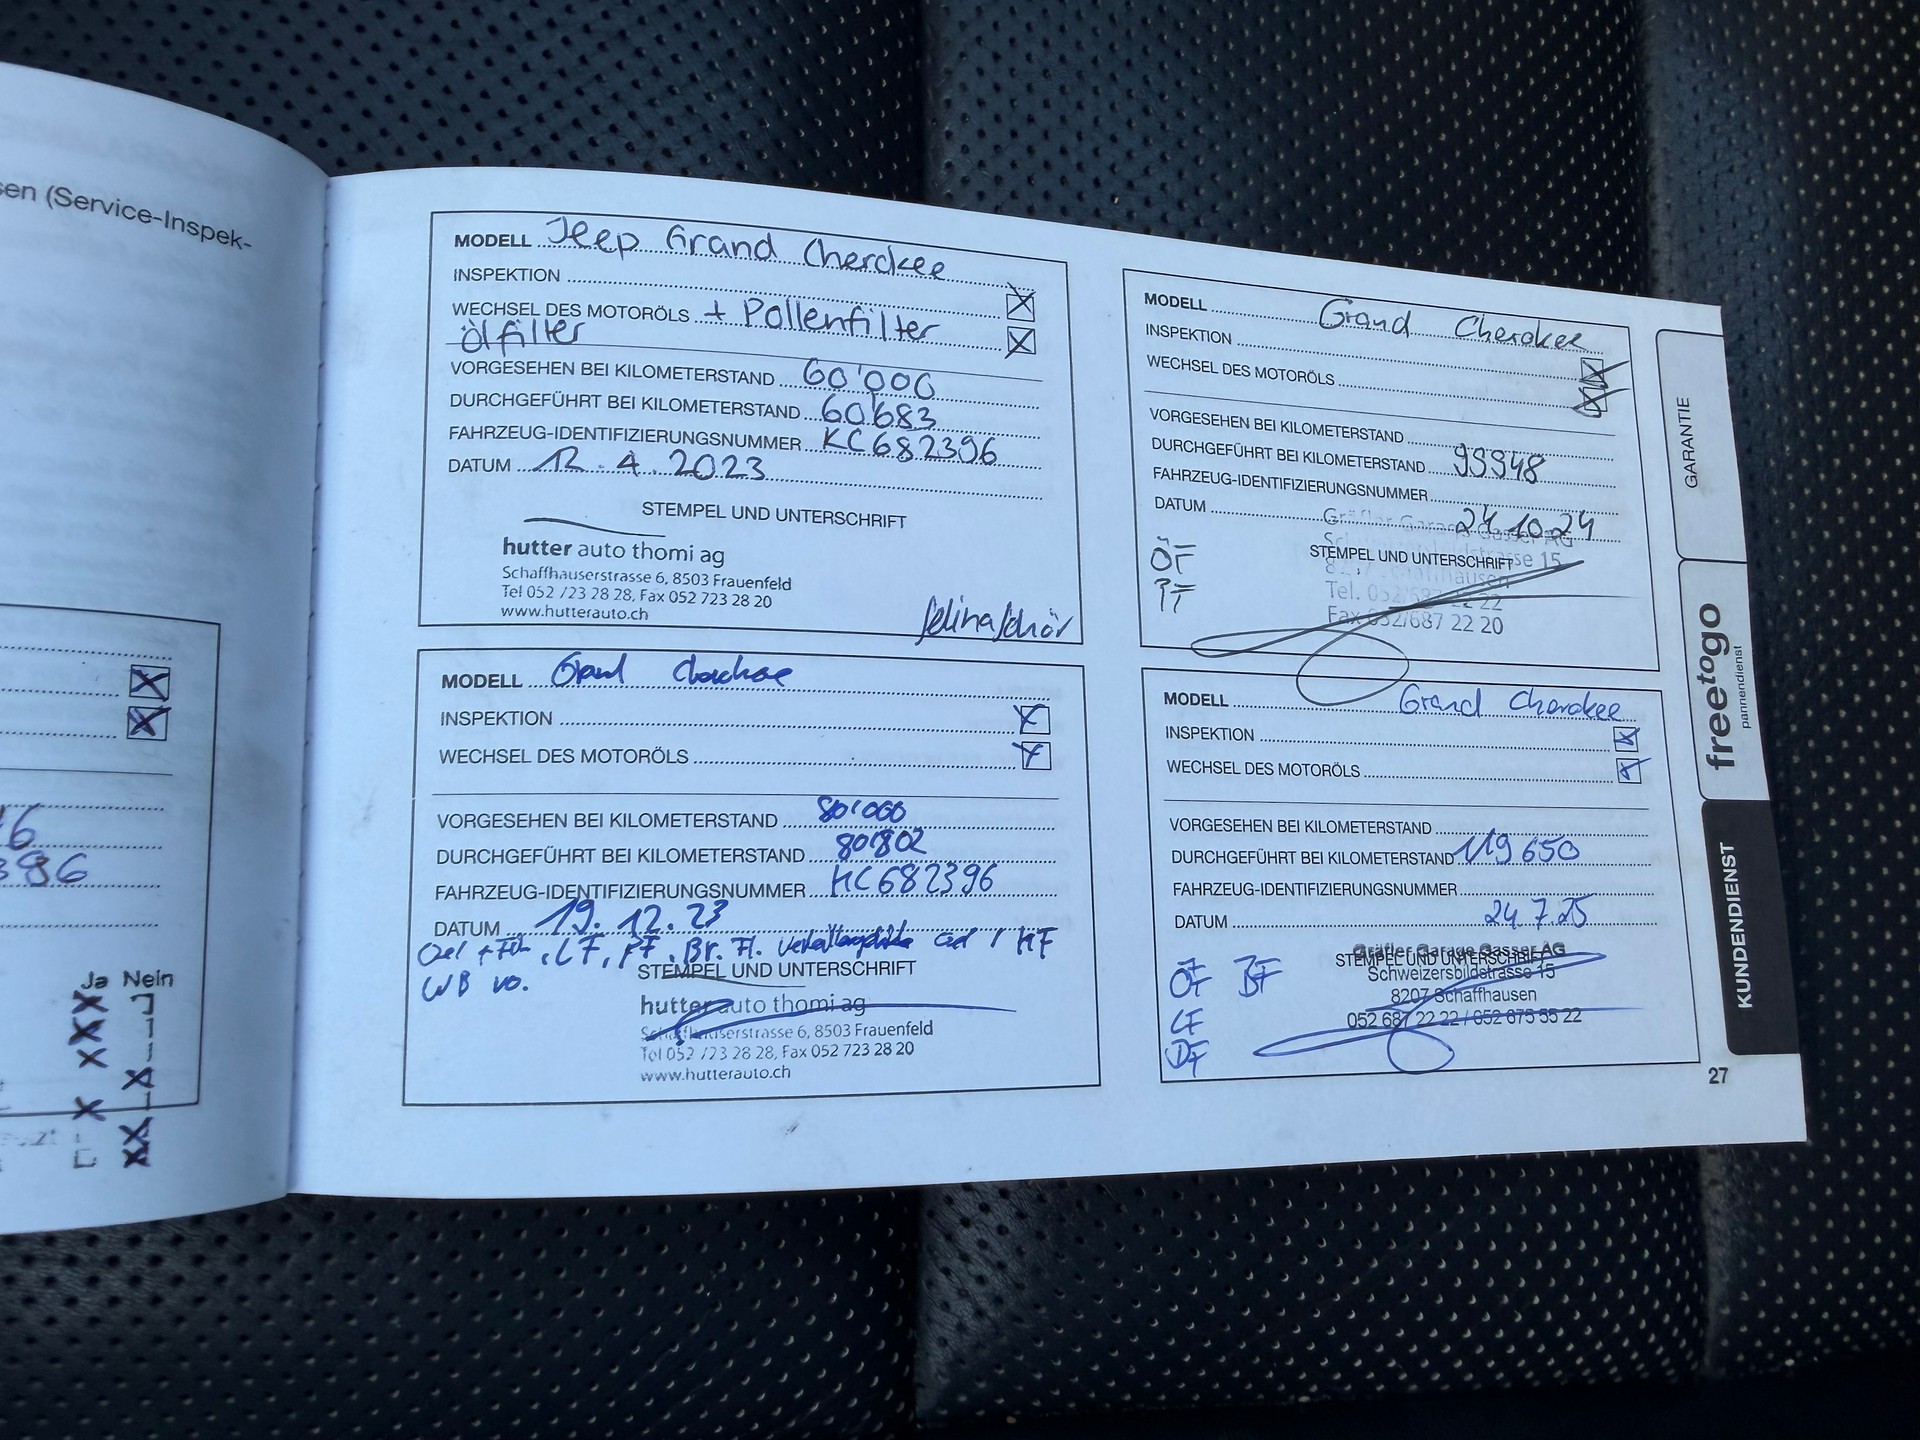 sen (Service-Inspek-
396
Ja Nein
MODELL Jeep Grand Cherokee
INSPEKTION
WECHSEL DES MOTORÖLS + Pollenfilter
Ölfilter
VORGESEHEN BEI KILOMETERSTAND 60'000
DURCHGEFÜHRT BEI KILOMETERSTAND 60'683
FAHRZEUG-IDENTIFIZIERUNGSNUMMER KC682396
DATUM 12.4.2023
STEMPEL UND UNTERSCHRIFT
hutter auto thomi ag
Schaffhauserstrasse 6, 8503 Frauenfeld
Tel 052 723 28 28, Fax 052 723 28 20
www.hutterauto.ch
MODELL Grand Cherokee
INSPEKTION
WECHSEL DES MOTORÖLS
VORGESEHEN BEI KILOMETERSTAND 80'000
DURCHGEFÜHRT BEI KILOMETERSTAND 80'802
FAHRZEUG-IDENTIFIZIERUNGSNUMMER KC682396
DATUM 19.12.23
Oel + Filt., LF, PF, Br. Fl.
STEMPEL UND UNTERSCHRIFT
WB vo.
hutter auto thomi ag
Schaffhauserstrasse 6, 8503 Frauenfeld
Tel 052 723 28 28, Fax 052 723 28 20
www.hutterauto.ch
MODELL Grand Cherokee
INSPEKTION
WECHSEL DES MOTORÖLS
VORGESEHEN BEI KILOMETERSTAND
DURCHGEFÜHRT BEI KILOMETERSTAND 99948
FAHRZEUG-IDENTIFIZIERUNGSNUMMER
DATUM 24.10.24
Gräfler Garage Gasser AG
STEMPEL UND UNTERSCHRIFT
ÖF
Tel. 052/687 22 22
Fax 052/687 22 20
MODELL Grand Cherokee
INSPEKTION
WECHSEL DES MOTORÖLS
VORGESEHEN BEI KILOMETERSTAND
DURCHGEFÜHRT BEI KILOMETERSTAND 119650
FAHRZEUG-IDENTIFIZIERUNGSNUMMER
DATUM 24.7.25
Gräfler Garage Gasser AG
STEMPEL UND UNTERSCHRIFT
Schweizersbildstrasse 15
8207 Schaffhausen
052 687 22 22 / 052 675 55 22
ÖF
LF
DF
27
GARANTIE
freetogo
pannendienst
KUNDENDIENST